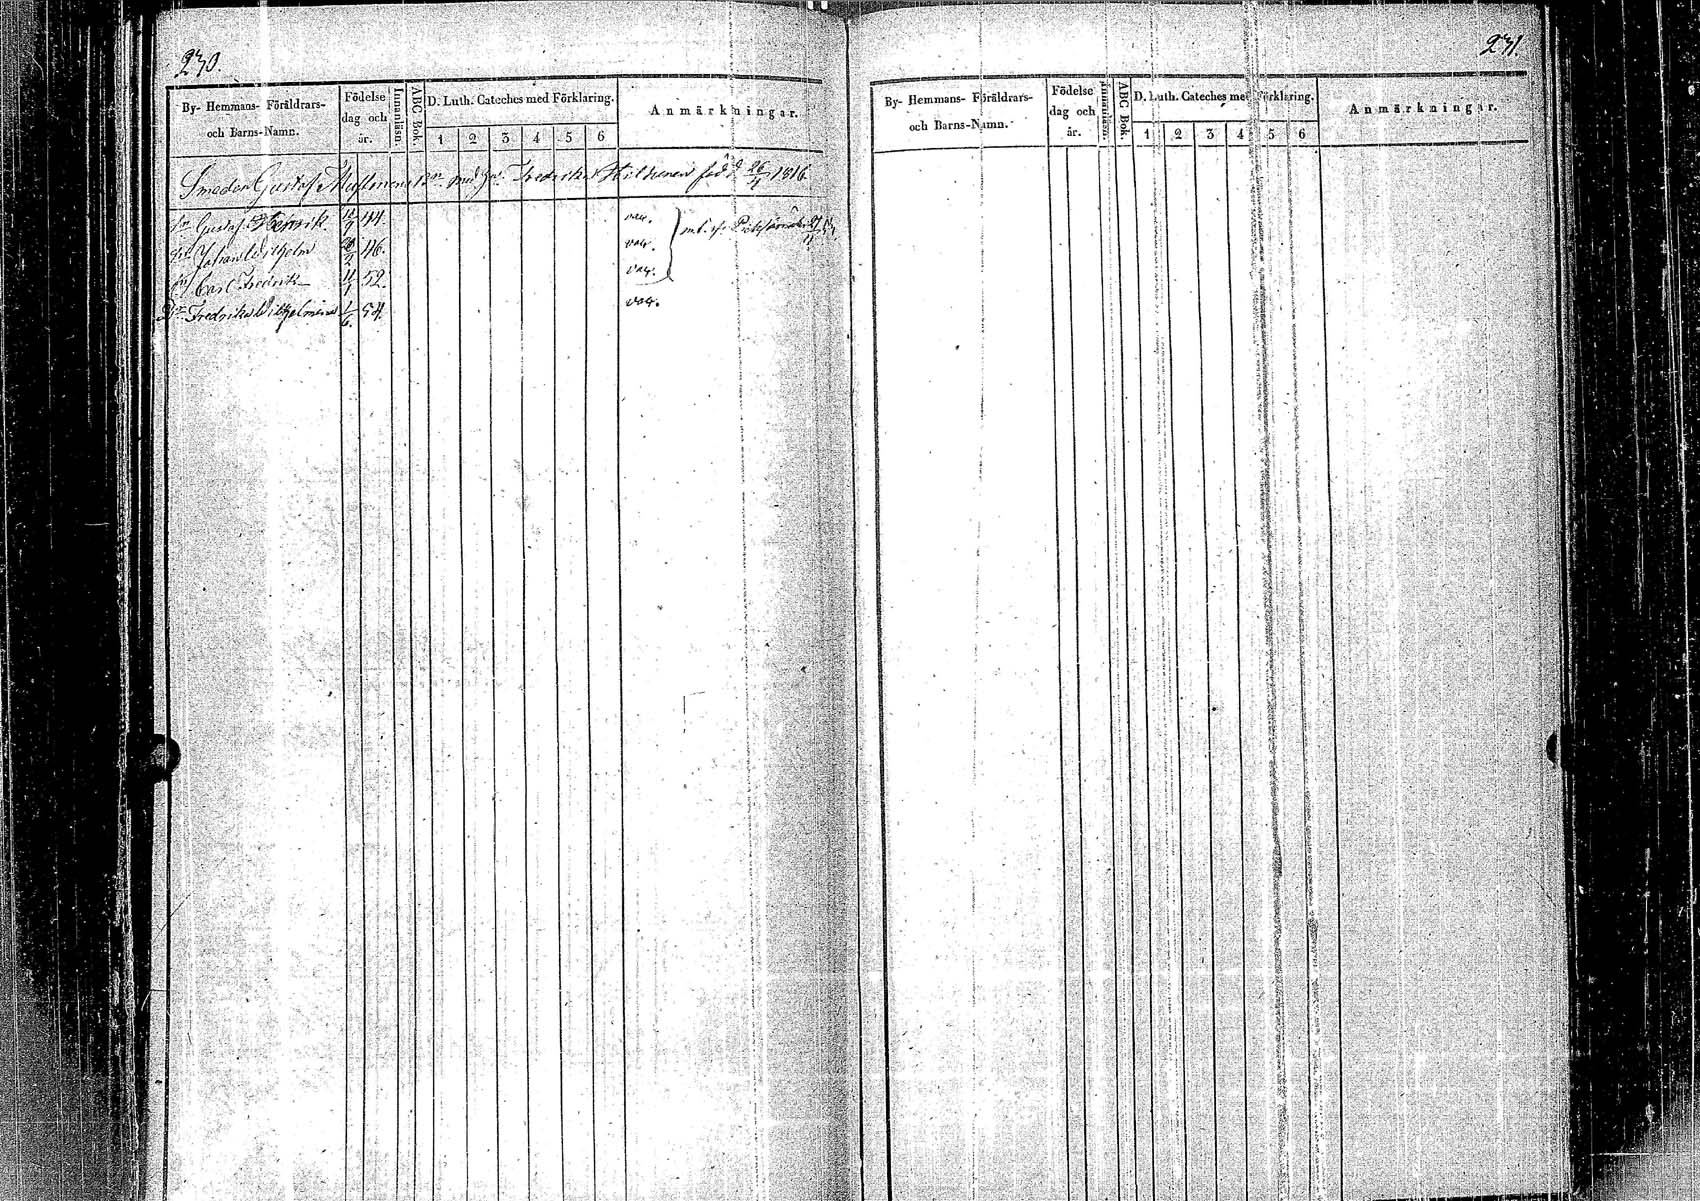 230.
By- Hemmans- Föräldrars-
och Barns-Namn.
Födelse
dag och
år.
Innanläsn.
ABC Bok.
D. Luth. Cateches med Förklaring.
1 2 3 4 5 6
Anmärkningar.
Smeden Gustaf med Fredrika född 26/1 1816.
Gustaf Henrik 44. vac.
Johan Wilhelm 46. vac.
Carl Fredrik 11/1 52. vac.
Fredrika Wilhelmina 1/6. 54. vac.
231
By- Hemmans- Föräldrars-
och Barns-Namn.
Födelse
dag och
år.
Innanläsn.
ABC Bok.
D. Luth. Cateches med Förklaring.
1 2 3 4 5 6
Anmärkningar.